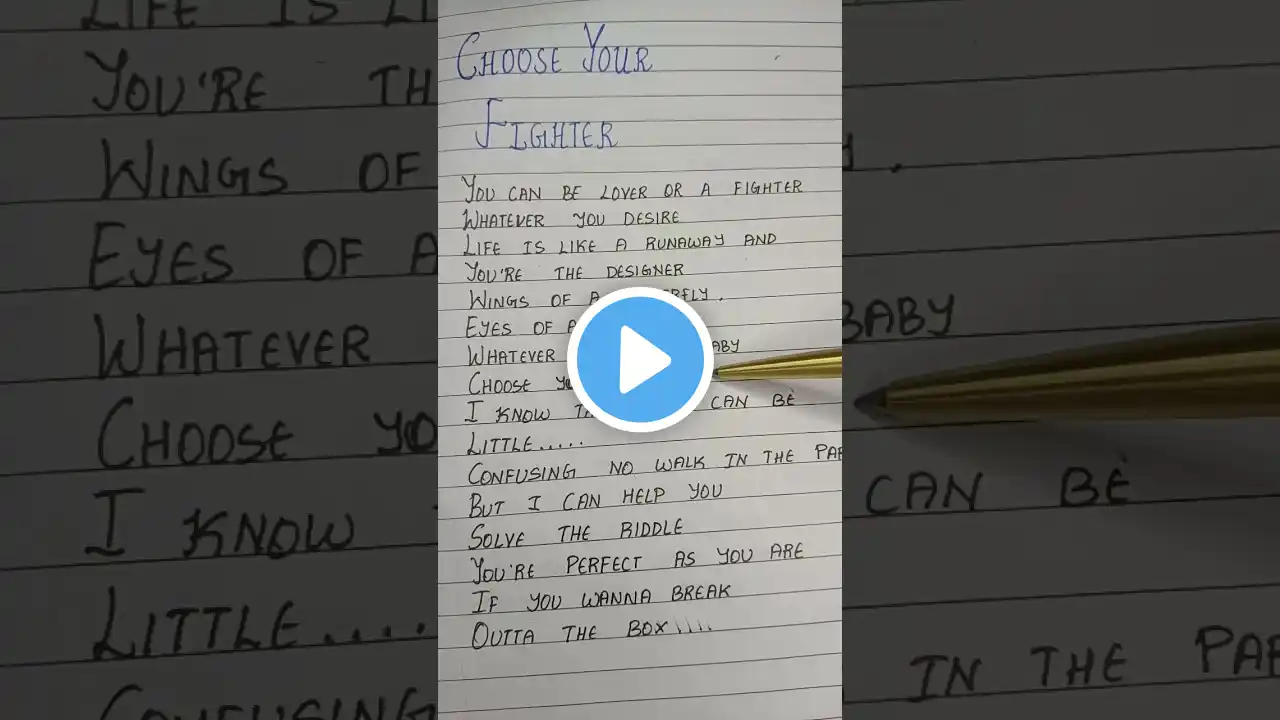 CHOOSE YOUR
FIGHTER
YOU CAN BE LOVER OR A FIGHTER
WHATEVER YOU DESIRE
LIFE IS LIKE A RUNAWAY AND
YOU'RE THE DESIGNER
WINGS OF A
EYES OF A
WHATEVER
CHOOSE
I KNOW CAN BE
LITTLE.....
CONFUSING NO WALK IN THE
BUT I CAN HELP YOU
SOLVE THE RIDDLE
YOU'RE PERFECT AS YOU ARE
IF YOU WANNA BREAK
OUTTA THE BOX....